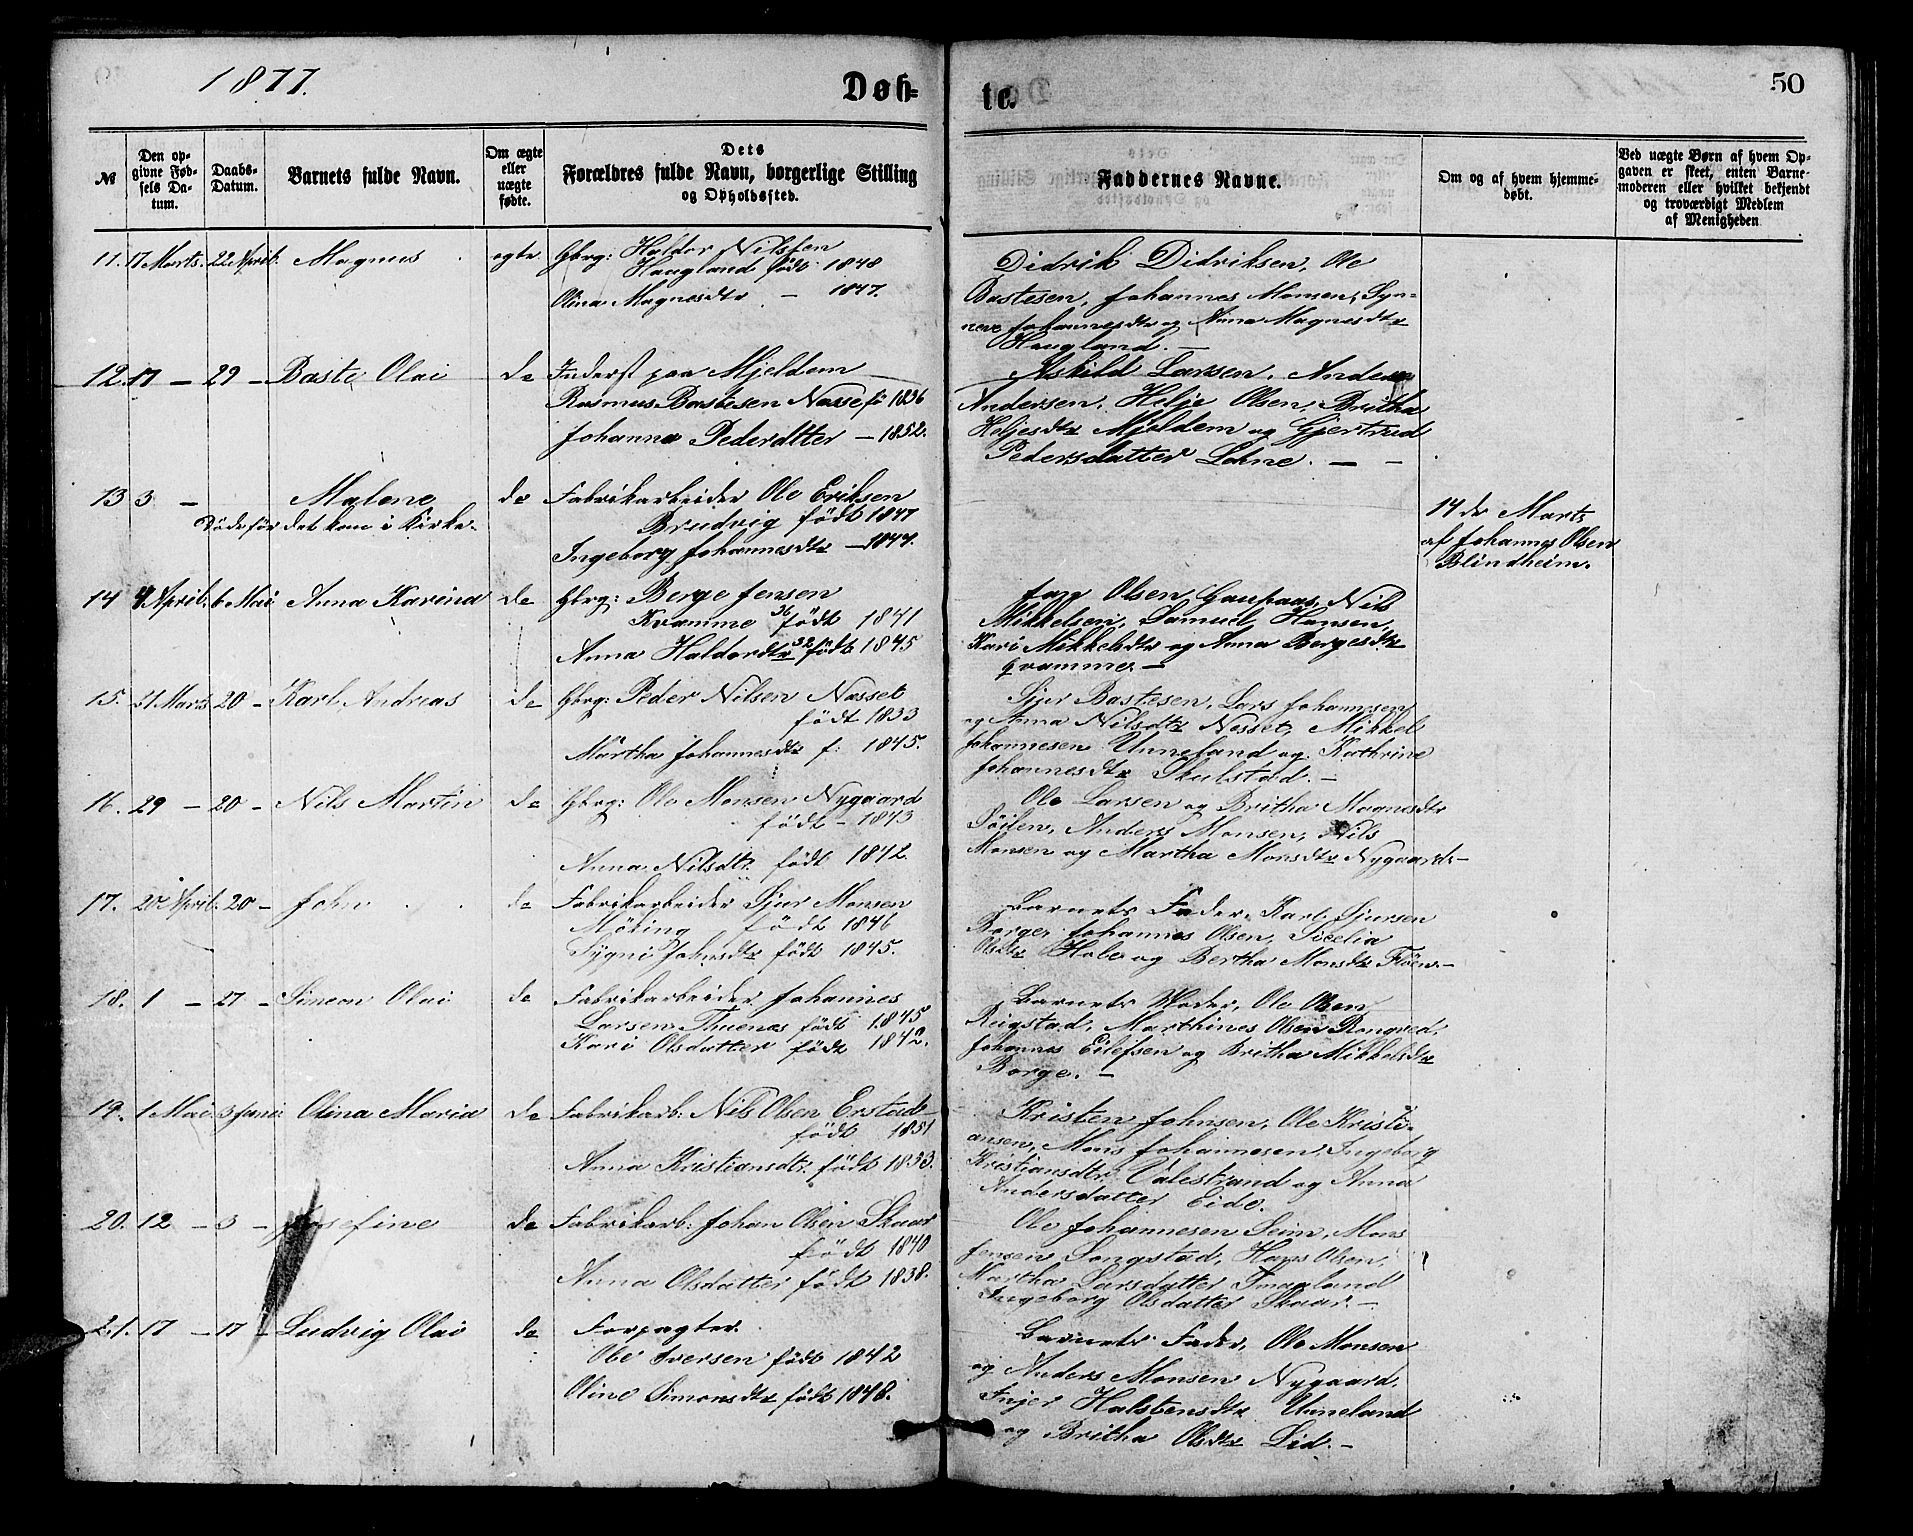 1877.
Døb-
te.
50
№
Den op-
givne Fød-
sels Da-
tum.
Daabs-
Datum.
Barnets fulde Navn.
Om ægte
eller
uægte
fødte.
Dets
Forældres fulde Navn, borgerlige Stilling
og Opholdssted.
Faddernes Navne.
Om og af hvem hjemme-
døbt.
Ved uægte Børn af hvem Op-
gaven er skeet, enten Barne-
moderen eller hvilket bekjendt
og troværdigt Medlem
af Menigheden
11. 17 Marts. 22 April. Magnus egte Gbrg: Haldor Nilssen
Haugland født 1848
Olina Magnesdtr — 1847.
Didrik Didriksen, Ole
Bastesen, Johannes Monsen, Syn-
neve Johannesdtr og Anna Magnesdtr
Haugland. —
12. 17 — 29 — Baste Olai de Inderst paa Mjeldem
Rasmus Bastesen Nesse f: 1836
Johanna Pederdtter — 1852.
Askild Larsen, Anders
Andersen, Helje Olsen, Britha
Heljesdtr Mjeldem og Gjertrud
Pedersdatter Lone. — —
13 3 — Malene de Fabrikarbeider Ole Eriksen
Døde før det kom i Kirke.
Brudvig født 1847
Ingeborg Johannesdtr — 1847.
14 de Marts
af Johannes Olsen
Blindheim.
14 4 April. 6 Mai Anna Karina de Gbrg: Berge Jensen
Kvamme 36 født 1841
Anna Haldordtr 32 født 1845
Olsen Gaupaas, Nils
Mikkelsen, Samuel Hansen,
Kari Mikkelsdtr og Anna Bergesdtr
Qvamme. —
15. 31 Marts 20 — Karl Andreas de Gbrg: Peder Nilsen Nesset
født 1833
Martha Johannesdtr f: 1845.
Sjur Bastesen, Lars Johannesen
og Anna Nilsdtr Nesset, Mikkel
Johannesen Unneland og Kathrine
Johannesdtr Skulstad. —
16. 29 — 20 — Nils Martin de Gbrg: Ole Monsen Nygaard
født — 1843
Anna Nilsdtr. født 1842.
Ole Larsen og Britha Magnesdtr
Anders Monsen, Nils
Monsen og Martha Monsdtr Nygaard. —
17. 20 April. 20 — John de Fabrikarbeider Sjur Monsen
Møking født 1846
Sygni Johnsdtr født 1845.
Barnets Fader, Karl Sjursen
Borge, Johannes Olsen, Sicelia
Olsdtr Hole og Bertha Monsdtr Fløen. —
18. 1 — 27 — Simeon Olai de Fabrikarbeider Johannes
Larsen Thuenæs født 1845
Kari Olsdatter født 1842.
Barnets Moder, Ole Olsen
Reigstad, Marthines Olsen Rongved,
Johannes Eilefsen og Britha Mikkelsdtr
Borge. —
19. 1 Mai. 3 Juni Olina Maria de Fabrikarb: Nils Olsen Erstad
født 1851
Anna Kristiansdtr. født 1853.
Kristen Johnsen, Ole Kristi-
ansen, Mons Johannesen, Ingeborg
Kristiansdtr Valestrand og Anna
Andersdatter Eide.
20. 12 — 3 — Josefine de Fabrikarb: Johan Olsen Skaar
født 1840
Anna Olsdatter født 1838.
Ole Johannesen Seim, Mons
Jensen Songstad, Hans Olsen,
Martha Larsdatter
Ingeborg Olsdatter Skaar. —
21. 17 — 17 — Ludvig Olai de Forpagter.
Ole Iversen født 1842
Oline Simonsdtr født 1848.
Barnets Fader, Ole Monsen
og Anders Monsen Nygaard,
Inger Halstensdtr Unneland
og Britha Olsdtr Lid. —